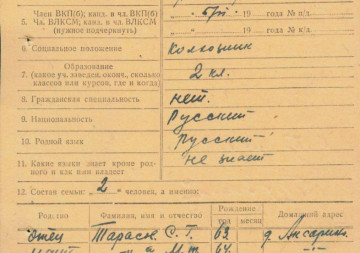 Член ВКП(б); канд. в чл. ВКП(б)
5. Чл. ВЛКСМ; канд. в чл. ВЛКСМ б/п 19 года № п/л.
(нужное подчеркнуть) 19 года № п/л.
6. Социальное положение Колхозник
Образование
7. (какое уч. заведен. оконч., сколько 2 кл.
классов или курсов, где и когда)
8. Гражданская специальность нет.
9. Национальность Русский
10. Родной язык Русский
11. Какие языки знает кроме род- не знает
ного и как ими владеет
12. Состав семьи: 2 человек, а именно:
Род. тво Фамилия, имя и отчество Рождение Домашний адрес
год месяц
Отец Тарасов С. Т. 63 д.
64